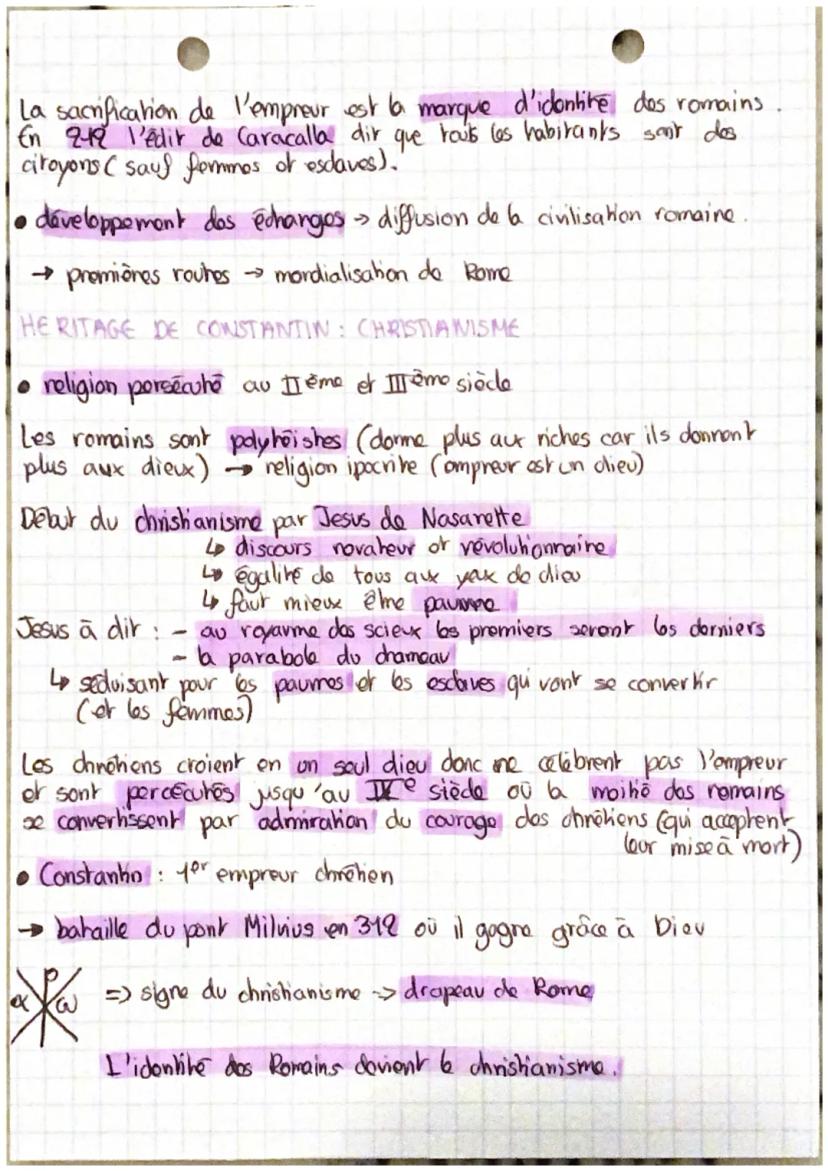 La sacrification de l'empreur est la marque d'identité des romains.
En 212 l'édit de Caracalla dit que touts les habitants sont des
citoyens (sauf femmes et esclaves).
• développement des échanges → diffusion de la civilisation romaine.
→ premières routes → mordialisation de Rome
HERITAGE DE CONSTANTIN : CHRISTIANISME
• religion persécuté au IIème et IIIème siècle
Les romains sont polythéistes (donne plus aux riches car ils donnent
plus aux dieux) → religion ipocrite (empreur est un dieu)
Début du christianisme par Jesus de Nasarette
↳ discours novateur et révolutionnaire
↳ égalité de tous aux yeux de dieu
↳ faut mieux être pauvre
Jesus à dit : - au royaume des scieux les premiers seront les derniers
- la parabole du chameau
↳ séduisant pour les pauvres et les esclaves qui vont se convertir
(et les femmes)
Les chrétiens croient en un seul dieu donc ne célèbrent pas l'empreur
et sont percécutés jusqu'au IVe siècle où la moitié des romains
se convertissent par admiration du courage des chrétiens (qui acceptent
leur mise à mort)
• Constantin : 1er empreur chrétien
→ bataille du pont Milvius en 312 où il gagne grâce à Dieu
α ω => signe du christianisme -> drapeau de Rome
L'identité des Romains devient le christianisme.